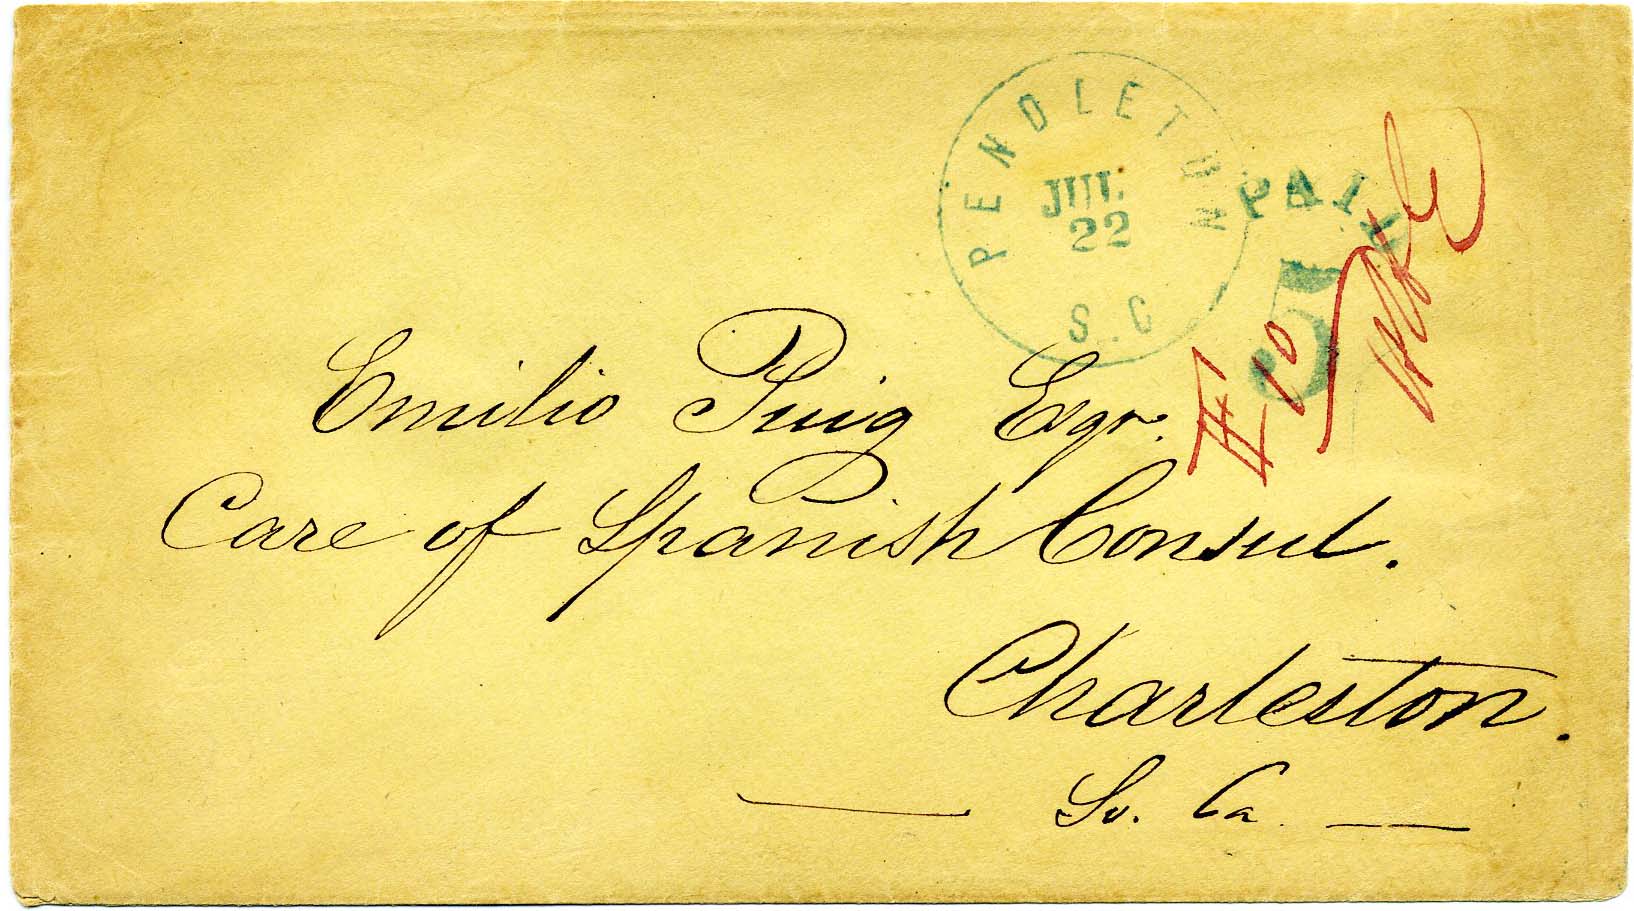 PENDLETON
JUL
22
S.C
PAID
5
Emilio Puig Esqr.
Care of Spanish Consul.
Charleston.
So. Ca.